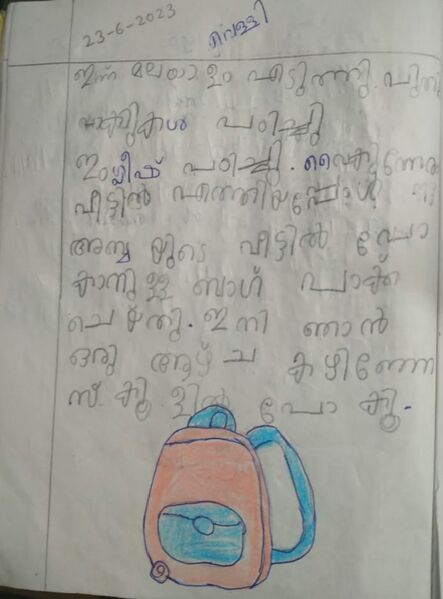 23-6-2023
വെള്ളി
ഇന്ന് മലയാളം എടുത്തു. പുതിയ
വാക്കുകൾ പഠിച്ചു
ഇംഗ്ലീഷ് പഠിച്ചു. വൈകുന്നേരം
വീട്ടിൽ എത്തിയപ്പോൾ
അമ്മ യുടെ വീട്ടിൽ പോ
കാനുള്ള ബാഗ് പാക്ക്
ചെയ്തു. ഇനി ഞാൻ
ഒരു ആഴ്ച കഴിഞ്ഞേ
സ്കൂളിൽ പോകൂ.